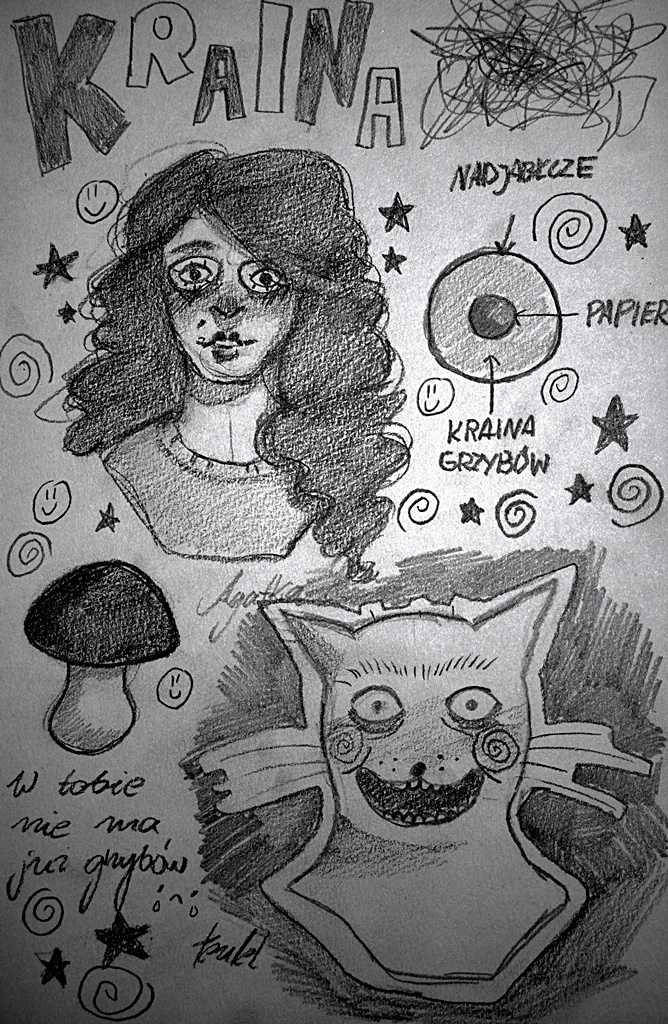 KRAINA
NADJABŁCZE
PAPIER
KRAINA
GRZYBÓW
Agatka
W tobie
nie ma
już grzybów